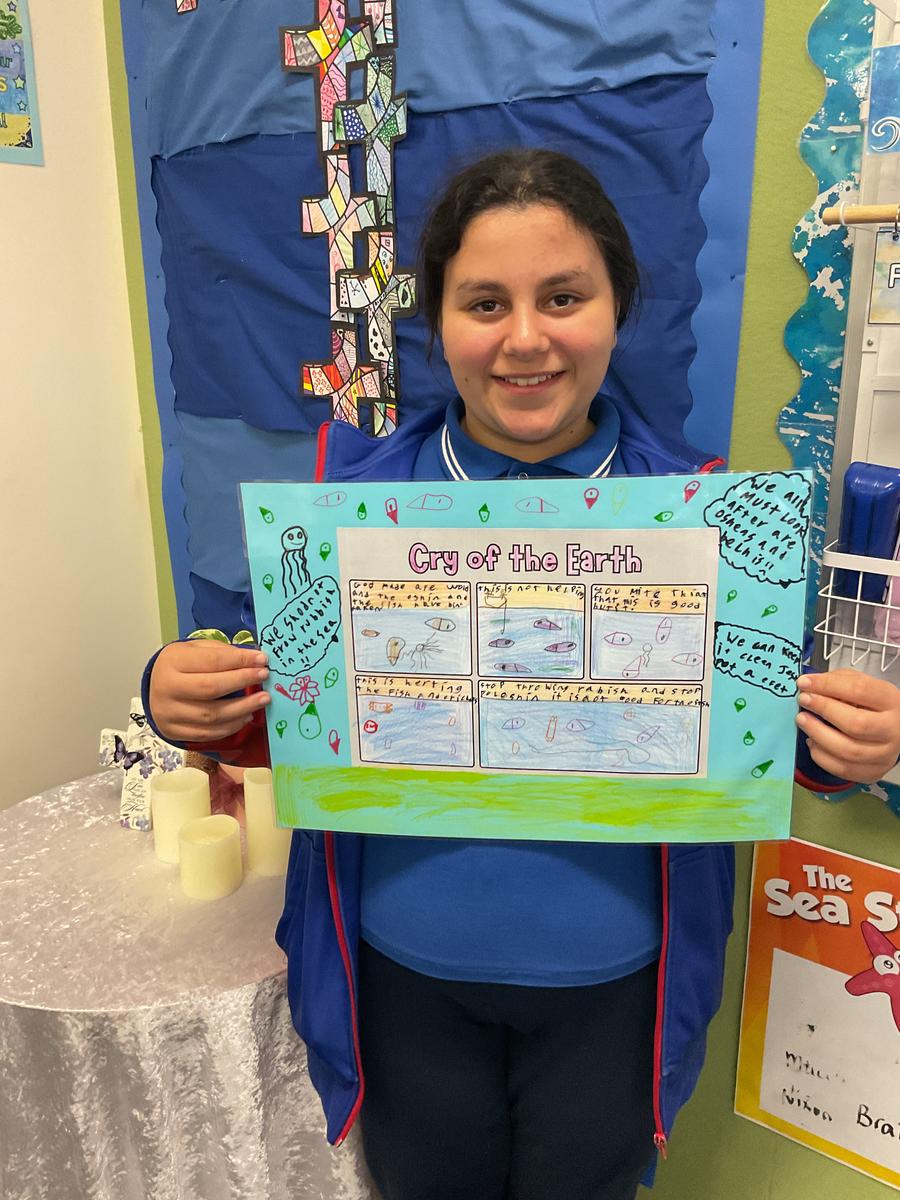 Cry of the Earth
God made are wold
and the oshin and
the fish have bin
this is not helping
you mite think
that this is good
this is herting
the fish and
stop throwing rabish and stop
it is not good for
We all
must look
after are
oshens and
helh it!!
We shodnt
frow rubbish
in the sea
!!
We can keep
it clean Jest
pot a efet
The
Sea St
Nixon Bra
F